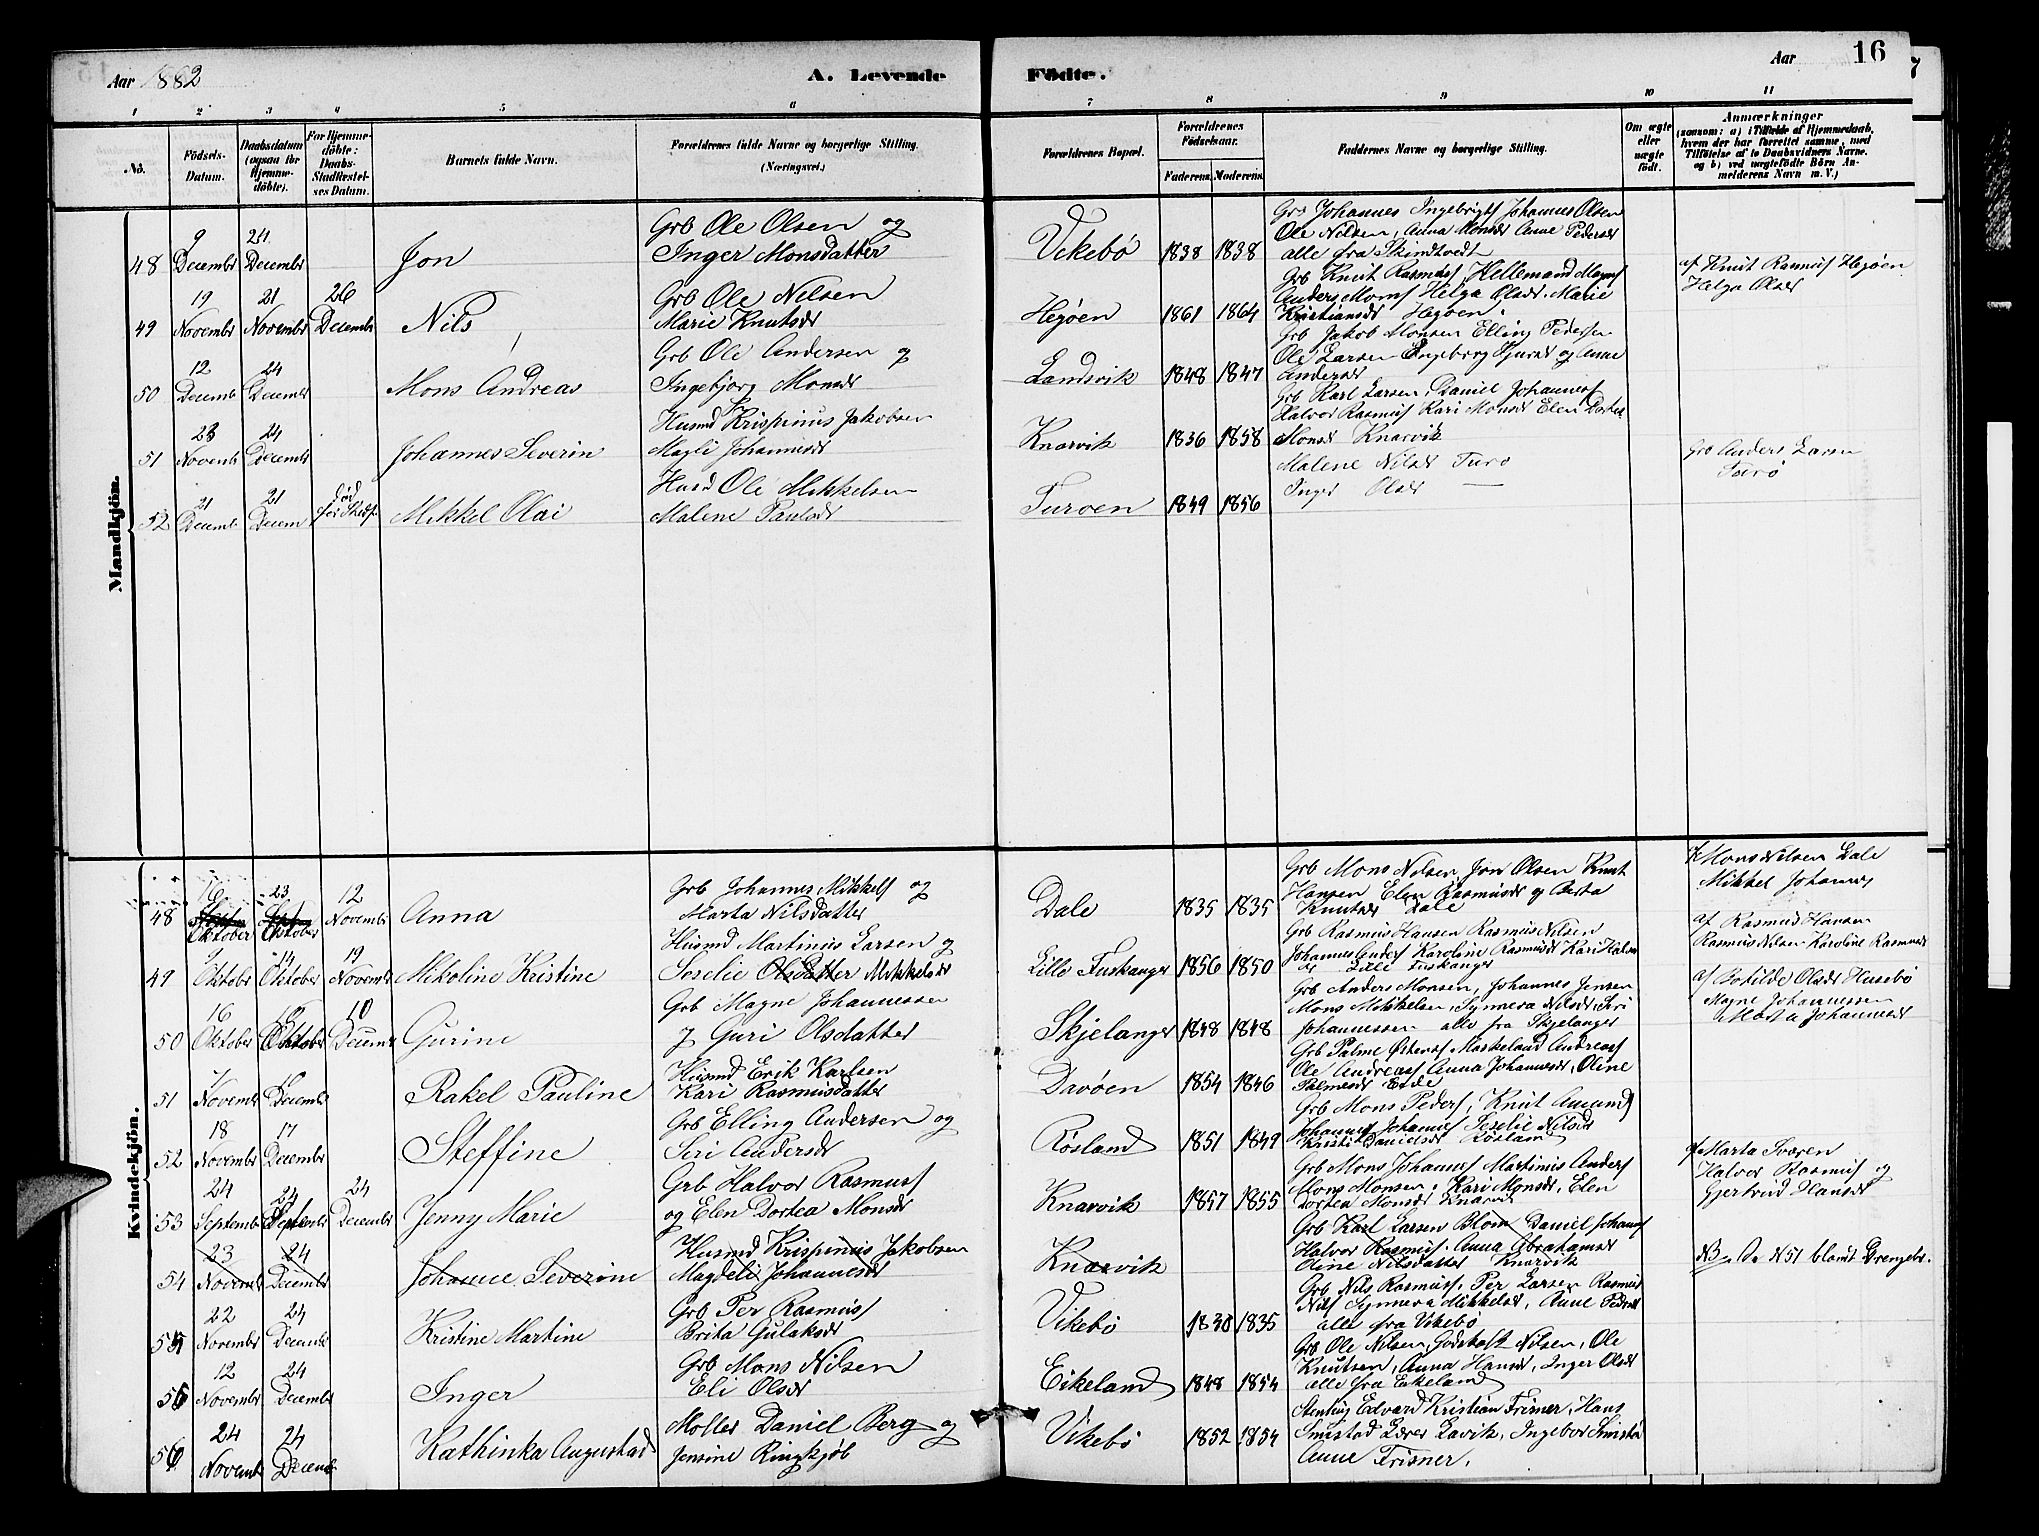 Aar 1882
A. Levende Fødte.
Aar 16
1 2 3 4 5 6 7 8 9 10 11
No.
Fødsels-Datum.
Daabsdatum (ogsaa for Hjemmedöbte).
For Hjemmedöbte: Daabs-Stadfæstelses Datum.
Barnets fulde Navn.
Forældrenes fulde Navne og borgerlige Stilling. (Næringsvei.)
Forældrenes Bopæl.
Forældrenes Fødselsaar.
Faderens. Moderens.
Faddernes Navne og borgerlige Stilling.
Om ægte eller uægte födt.
Anmærkninger
(saasom: a) i Tilfælde af Hjemmedaab, hvem der har forrettet samme, med Tilföielse af to Daabsvidners Navne. og b) ved uægtefödte Börn Anmelderens Navn m. V.)
Mandkjön.
48 9 Decembr 24 Decembr Jon
Grb Ole Olsen og
Inger Monsdatter
Vikebö 1838 1838
Grb Johannes Ingebrigts Johannes Olsen
Ole Nilsen, Anna Monsdr Anne Pedersdr
alle fra
49 19 Novembr 21 Novembr 26 Decembr Nils
Grb Ole Nilsen
Marie Knutsdr
Hegöen 1861 1864
Grb Knut Rasmuss, Hellemand Magns
Anders Mons Helga Olsdr. Marie
Kristiansdr Hegöen.
af Knut Rasmuss Hegöen
Helga Olsdr
50 12 Decemb 24 Decembr Mons Andreas
Grb Ole Andersen og
Ingebjorg Monsdr
Landsvik 1848 1847
Grb Jakob Monsen Elling Pedersen
Ole Larsen Ingeborg og Anne
Andersdr
51 23 Novemb 24 Decembr Johannes Severin
Husmd Krispinus Jakobsen
Magli Johannesdr
Knarvik 1836 1858
Grb Karl Larsen, Daniel Johanness
Halvor Rasmuss Kari Monsdr Elen Dortea
Monsdr Knarvik
52 21 Decemb 21 Decem död
Mikkel Olai
Husd Ole Mikkelsen
Malene Paulsdr
Turoen 1849 1856
Malene Nilsdr Turo
Inger Olsdr —
Grb Anders Larsen
Turö
Kvindekjön.
48 16 Oktober 23 Oktober 12 Novembr Anna
Grb Johannes Mikkels og
Marta Nilsdatter
Dale 1835 1835
Grb Mons Nilsen, Jon Olsen Knut
Hansen Elen Rasmusdr og Berta
Knutsdr Dale
Mons Nilsen Dale
Mikkel Johannes
49 9 Oktober 14 Oktober 19 Novembr Mikoline Kristine
Husmd Martinus Larsen og
Seselie Olsdatter Mikkelsdr
Lille Tuskanger 1856 1850
Grb Rasmus Hansen Rasmus Nilsen
Johannes Anders Karoline Rasmusdr Kari
Lille Tuskanger
af Rasmus Hansen
Rasmus Nilsen Karoline Rasmusdr
50 16 Oktober Oktober 10 Decemr Gurine
Grb Magne Johannessen
og Guri Olsdatter
Skjelanger 1848 1848
Grb Anders Monsen, Johannes Jensen
Mons Mikkelsen, Synnera Nilsdr, Siri
Johannessen alle fra Skjelanger
af Botilde Olsdr Husebö
Magne Johannessen
Marta Johannesdr
51 Novembr Decembr Rakel Pauline
Husmd Erik Karlsen
Kari Rasmusdatter
Davöen 1854 1846
Grb Palme Maskeland Andreas
Ole Andreass Anna Johannesdr, Oline
Palmesdr Eide
52 18 Novembr 17 Decembr Steffine
Grb Elling Andersen og
Siri Andersdr
Rösland 1851 1849
Grb Mons Peders, Knut Amunds
Johannes Johannes Seselie Nilsdr
Kristi Danielsdr Rösland
53 24 Septembr 24 Septembr 24 Decembr Jenny Marie
Grb Halvor Rasmuss
og Elen Dortea Monsdr
Knarvik 1857 1855
Grb Mons Johanness Martinus Anders
Mons Monsen, Kari Monsdr, Elen
Dortea Monsdr Knarvik
af Marta Tværen
Halvor Rasmuss og
Gjertrud Hansdr
54 23 Novemb 24 Decembr Johanne Severine
Husmd Krispinius Jakobsen
Magdeli Johannesdr
Knarvik
Grb Karl Larsen Blom Daniel Johanns
Halvor Rasmuss. Anna Abrahamsdr
Oline Nilsdatter Knarvik
NB. N51 blandt Drengebr.
55 22 Novembr 24 Decemb Kristine Martine
Grb Per Rasmuss
Brita Gulaksdr
Vikebö 1830 1835
Grb Nils Rasmuss, Per Larsen Rasmus
Nils Synnera Mikkelsdr, Anne Pedersdr
alle fra Vikebö
56 12 Novembr 24 Decembr Inger
Grb Mons Nilsen
Eli Olsdr
Eikeland 1848 1854
Grb Ole Nilsen, Godskalk Nilsen, Ole
Knutsen, Anna Hansdr, Inger Olsdr
alle fra Eikeland
56 24 Novemb 24 Decemb Kathinka Augustad
Moller Daniel Berg og
Jensine Ringkjöb
Vikebö 1852 1854
Edvard Kristian Frisner, Hans
Simistad Lærer Lavik, Ingebor
Anne Frisner,